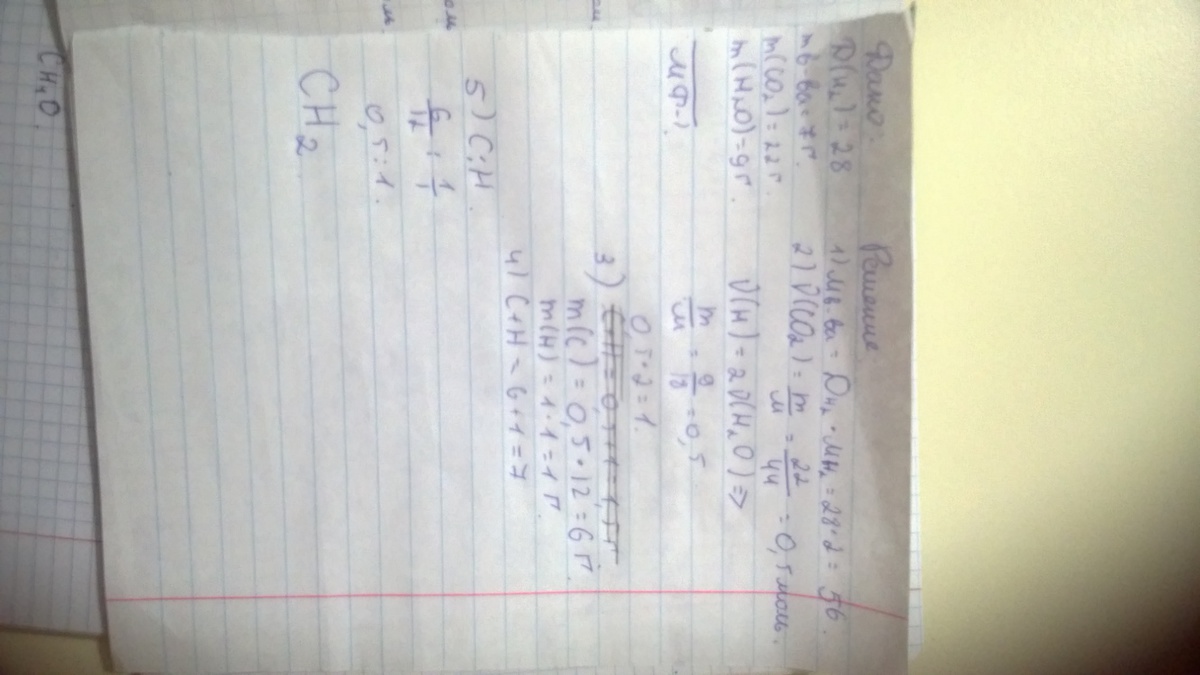 Дано:
D(H₂) = 28
m в-ва = 7 г.
m(CO₂) = 22 г.
m(H₂O) = 9 г.
МФ-?
Решение
1) M в-ва = D H₂ · M H₂ = 28·2 = 56.
2) ν(CO₂) = m/M = 22/44 = 0,5 моль.
ν(H) = 2ν(H₂O) =>
m/M = 9/18 = 0,5
0,5·2 = 1.
3) C+H = 0,5+1 = 1,5 г
m(C) = 0,5·12 = 6 г.
m(H) = 1·1 = 1 г.
4) C+H = 6+1 = 7
5) C:H.
6/12 : 1/1
0,5:1.
CH₂
CH₄O.